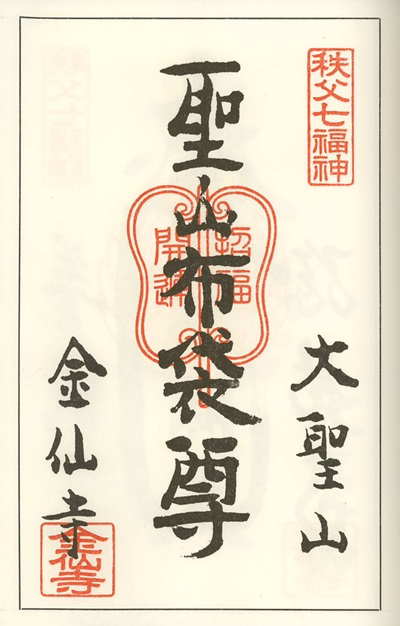 秩父七福神
大聖山
聖山布袋尊
招福
開運
金仙寺
金仙寺